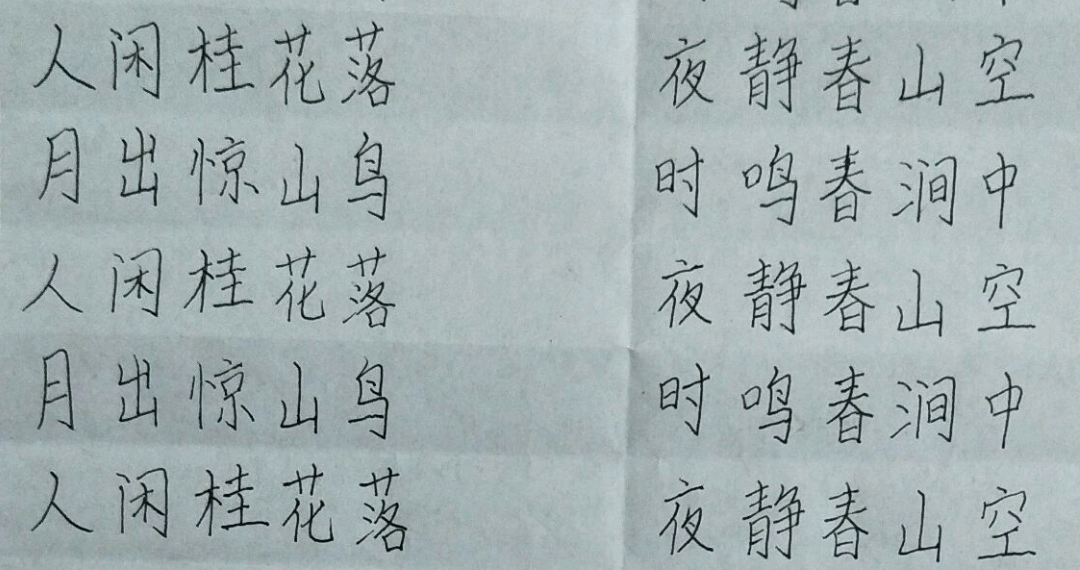 人闲桂花落 夜静春山空
月出惊山鸟 时鸣春涧中
人闲桂花落 夜静春山空
月出惊山鸟 时鸣春涧中
人闲桂花落 夜静春山空